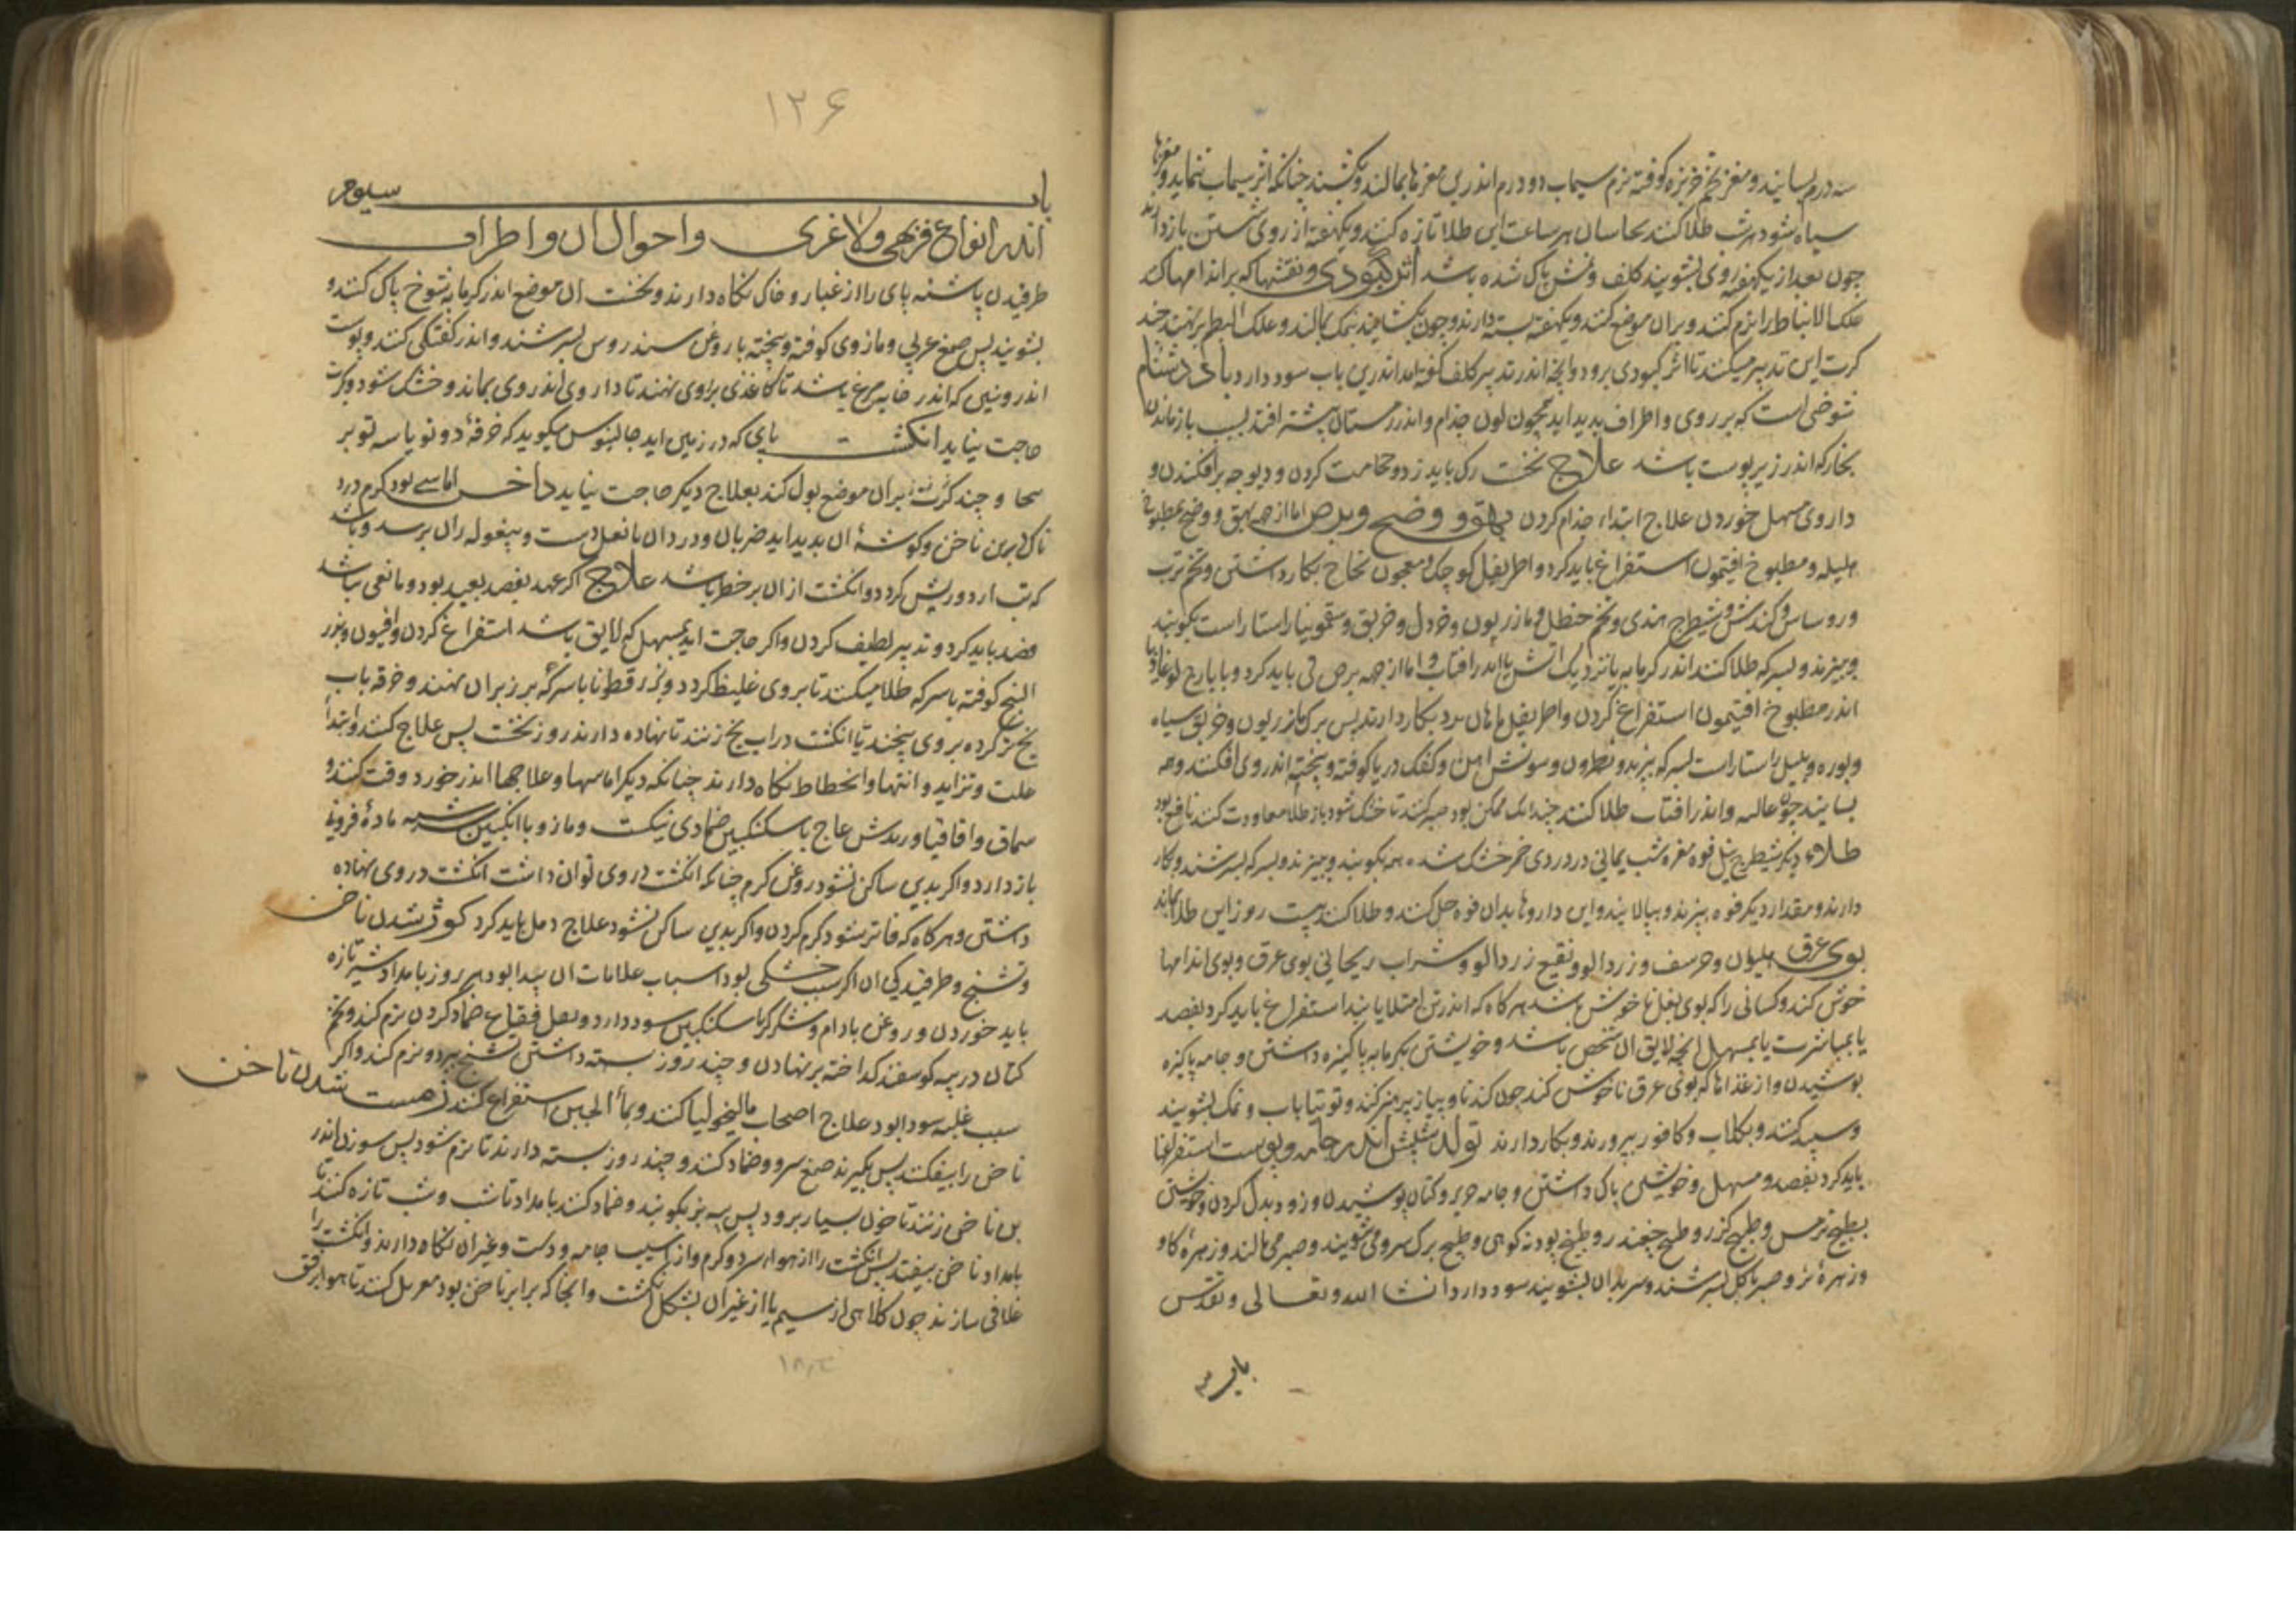 سه درم بسایند و مغز تخم خربزه کوفته نرم سیماب دو درم اندرین مغزها بمالند و بکشند چنانکه اثر سیماب ننماید و مغزها
سیاه شود هر شب طلا کنند بحاسان هر ساعت این طلا تازه کنند و یکهفته از روی شستن باز دارند
چون بعد از یکهفته روی بشویند کلف و نمش پاک شده باشد اثر کبودی و نقشها که بر اندامها کنند
علک الانباط را نرم کنند و بران موضع کنند و یکهفته بسته دارند و چون بکشایند بنمک بمالند و علک البطم بر نهند چند
کرت این تدبیر میکنند تا اثر کبودی برود و انچه اندر تدبیر کلف گفته اند اندرین باب سود دارد بادشنام
شوخی است که بر روی و اطراف پدید اید همچون لون جذام و اندر زمستان بیشتر افتد بسبب باز ماندن
بخار که اندر زیر پوست باشد علاج نخست رک باید زد و حجامت کردن و دیوجه برافکندن و
داروی مسهل خوردن علاج ابتداء جذام کردن بهق و وضح و برص اما از جهه بهق و وضح بمطبوخ
هلیله و مطبوخ افتیمون استفراغ باید کرد و اطریفل کوچک و معجون نجاح بکار داشتن و تخم ترب
و روساس و کندش و شیطرج هندی و تخم حنظل و مازریون و خردل و خربق و سقمونیا راستا راست بکوبند
و بپزند و بسرکه طلا کنند اندر کرمابه یا نزدیک اتش یا اندر افتاب و اما از جهه برص قی باید کرد و بایارج لوغاذیا
اندر مطبوخ افتیمون استفراغ کردن و اطریفل ماهان برد بکار دارند پس برک مازریون و خربق سیاه
و بوره و پلپل راستا راست بسرکه بپزند و نطرون و سونش اهن و کفک دریا کوفته و بیخته اندر وی افکنند و همه
بسایند چون غالیه و اندر افتاب طلا کنند چندانک ممکن بود صبر کنند تا خشک شود باز طلا معاودت کنند نافع بود
طلاء دیکر شیطرج نیل فوه مغره شب یمانی دردی خمر خشک شده همه بکوبند و بپزند و بسرکه بسرشند و بکار
دارند و مقدار دیکر فوه بپزند و بپالایند و این داروها بدان فوه حل کنند و طلا کنند بیست روز این طلا بماند
بوی عرق هلیون و حرسف و زردالو و نقیع زردالو و شراب ریحانی بوی عرق و بوی اندامها
خوش کند و کسانی را که بوی بغل ناخوش باشد هرکاه که اندر تن امتلا یابند استفراغ باید کرد بفصد
یا بمباشرت یا بمسهل انچه لایق ان شخص باشد و خویشتن بکرمابه پاکیزه داشتن و جامه پاکیزه
پوشیدن و از غذاها که بوی عرق ناخوش کند چون کندنا و پیاز پرهیز کنند و توتیا باب و نمک بشویند
و سپید کنند و بکلاب و کافور بپرورند و بکار دارند تولد شپش اندر جامه و پوست استفراغها
باید کرد بفصد و مسهل و خویشتن پاک داشتن و جامه حریر و کتان پوشیدن و زود بدل کردن و خویشتن
بطبیخ ترمس و طبیخ کزر و طبیخ چغندر و طبیخ پودنه کوهی و طبیخ برک سرو می شویند و صبر می مالند و زهره کاو
و زهره بز و صبر با کل بسرشند و سر بدان بشویند سود دارد انشا الله و تعالی و تقدس
باب سیم
۱۲۶
باب سیوم
اندر انواع فربهی و لاغری و احوال ان و اطراف
طرقیدن پاشنه پای را از غبار و خاک نکاه دارند و نخست ان موضع اندر کرمابه بشوخ پاک کنند و
بشویند پس صمغ عربی و مازوی کوفته و بیخته با روغن سندروس بسرشند و اندر کفتکی کنند و پوست
اندرونین که اندر خایه مرغ باشد تا کاغذی براوی نهند تا داروی اندر وی بماند و خشک شود و بکرت
حاجت نیاید انکشت پای که در زمین اید جالینوس میکوید که خرقهٔ دو تو یا سه تو بر
سحا و چند کرت بران موضع بول کند بعلاج دیکر حاجت نیاید داخس اماسی بود کرم درد
ناک در بن ناخن و کوشهٔ ان پدید اید ضربان و درد ان با نعل دست و بیغوله ران برسد و باشد
که تب ارد و ریش کردد و انکشت از ان بر خطر باشد علاج اکر عهد بفصد بعید بود و مانعی نباشد
فصد باید کرد و تدبیر لطیف کردن و اکر حاجت اید بمسهل که لایق باشد استفراغ کردن و افیون و بزر
البنج کوفته با سرکه طلا میکنند تا بر وی غلیظ کردد و بزر قطونا با سرکه بر زبر ان نهند و خرقه باب
یخ تر کرده بر وی پیچند یا انکشت در اب یخ زنند تا نهاده دارند روز نخست پس علاج کنند و ابتدا
علت و تزاید و انتها و انحطاط نکاه دارند چنانکه دیکر اماسها و علاجها اندر خورد وقت کنند و
سماق و اقاقیا و ریدش عاج با سکنکبین ضمادی نیکست و مازو با انکبین سرشته مادهٔ فرونه
باز دارد و اکر بدین ساکن نشود روغن کرم چنانکه انکشت در وی توان داشت انکشت در وی نهاده
داشتن و هرکاه که فاتر شود کرم کردن و اکر بدین ساکن نشود علاج دمل باید کرد کوژ شدن ناخن
و تشنج و طرقیدکی ان اکر سبب خشکی بود اسباب علامات ان پیدا بود هر روز بامداد شیر تازه
باید خوردن و روغن بادام و شکر یا سکنکبین سود دارد و بعل فقاع ضماد کردن نرم کند و تخم
کتان در پیه کوسفند کداخته بر نهادن و چند روز بسته داشتن تشنج ببرد و نرم کند و اکر
سبب غلبه سودا بود علاج اصحاب مالیخولیا کنند و بماء الجبن استفراغ کنند زهست شدن ناخن
ناخن را بیفکنند پس بکیرند صمغ سرو و ضماد کنند و چند روز بسته دارند تا نرم شود پس سوزن اندر
بن ناخن زنند تا خون بسیار برود پس سیر بکوبند و ضماد کنند بامداد تا شب و شب تازه کنند تا
بامداد ناخن بیفتد پس انکشت را از هواء سرد و کرم و از اسیب جامه و دست و غیر ان نکاه دارند و انکشت را
غلافی سازند چون کلاهی از سیم یا از غیر ان بشکل انکشت و انجا که برابر ناخن بود مغربل کنند تا هوا برفق